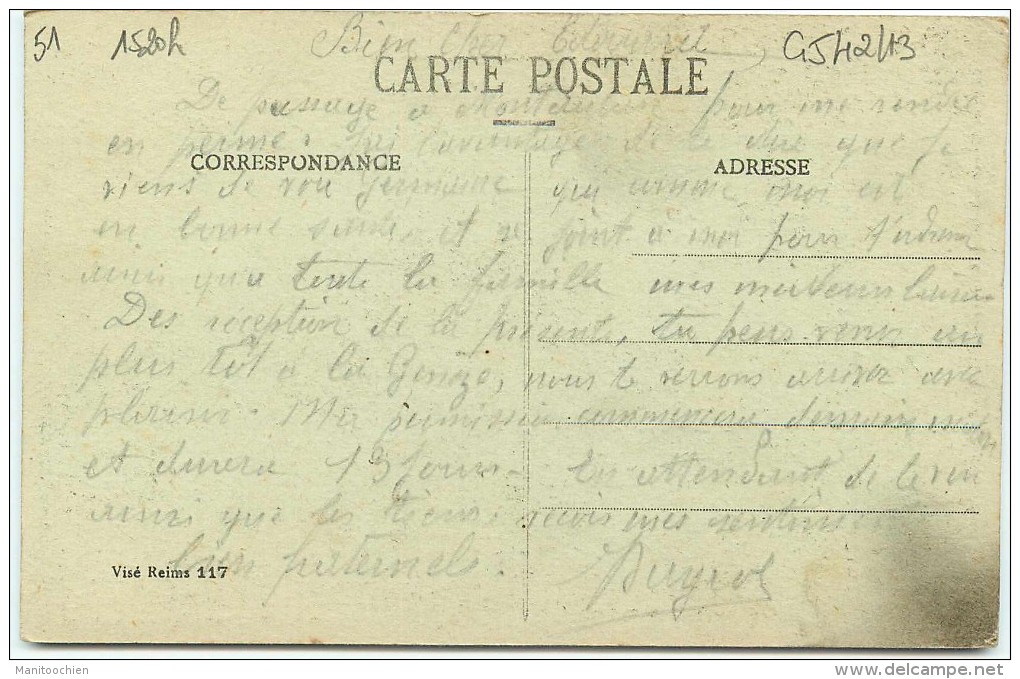 51 1520h Bien Cher Edouard G542/13
CARTE POSTALE
De passage à Montauban pour me rendre
en perme. J'ai l'avantage de te dire que je
CORRESPONDANCE ADRESSE
viens de voir Germaine qui comme moi est
en bonne santé, et se joint à moi pour t'adresser
ainsi qu'a toute la famille mes meilleurs baisers
Des reception de la présent, tu peus venir au
plus tôt à la nous te verrons arriver avec
plaisir. Ma permission commencera demain
et durera 13 jours. En attendant de te voir
ainsi que les tiens, reçois mes sentiments
bien fraternels.
Visé Reims 117
Manitoochien
http://www.delcampe.net